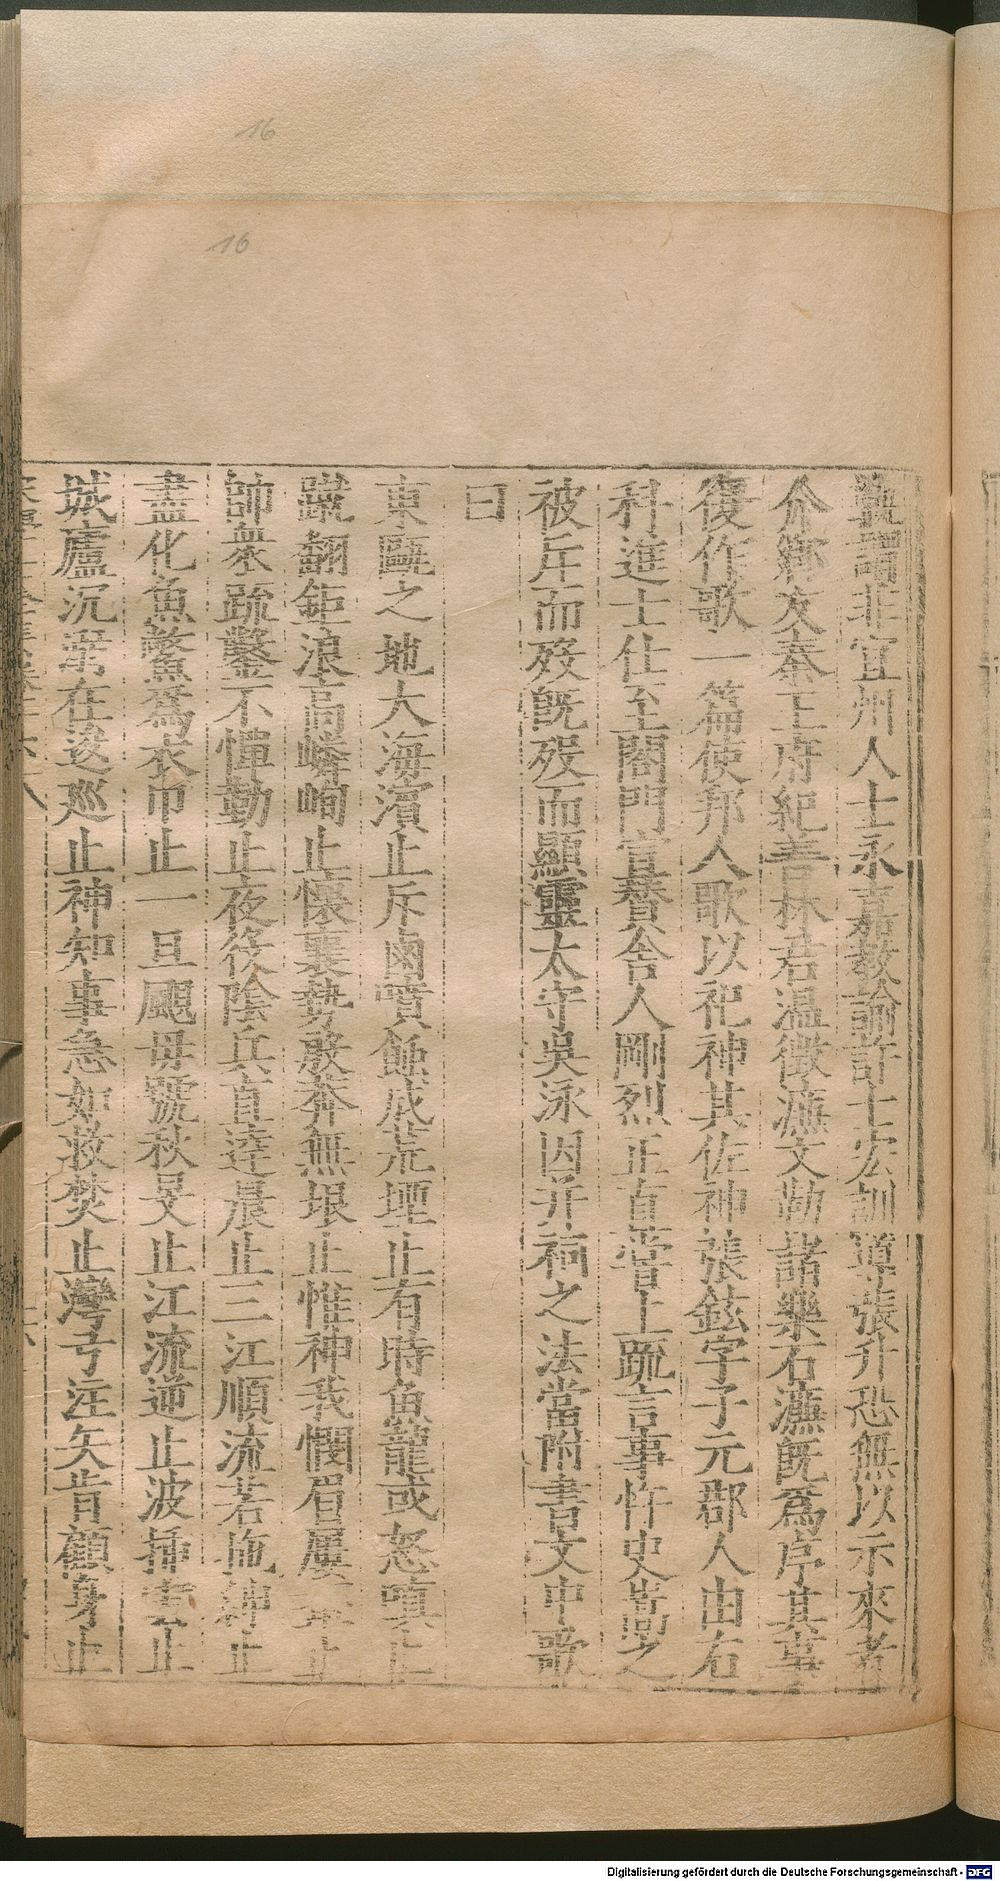 16
16
執謂非宜州人士永嘉教諭許士宏訓導張升恐無以示來者
介鄉友秦王府紀善林君温徵濂文勒諸樂石濂既爲序其事
復作歌一篇使邦人歌以祀神其佐神張鋐字子元郡人由右
科進士仕至閤門宣贊舍人剛烈正直嘗上疏言事忤史嵩之
被斥而歿既歿而顯靈太守吳泳因并祠之法當附書文中歌
曰
東甌之地大海濱止斥鹵噴蝕成荒堙止有時魚龍或怒嗔止
蹴翻鉅浪高嶙峋止懷襄勢殷奔無垠止惟神我憫眉屢止
帥眾疏鑿不憚勤止夜役陰兵直達晨止三江順流若拖紳止
盡化魚鱉爲衣巾止一旦颶毋號秋旻止江流逆止波捶止
城廬沉溺在逡巡止神知事急如救焚止灣弓注矢肯顧身止
Digitalisierung gefördert durch die Deutsche Forschungsgemeinschaft - DFG